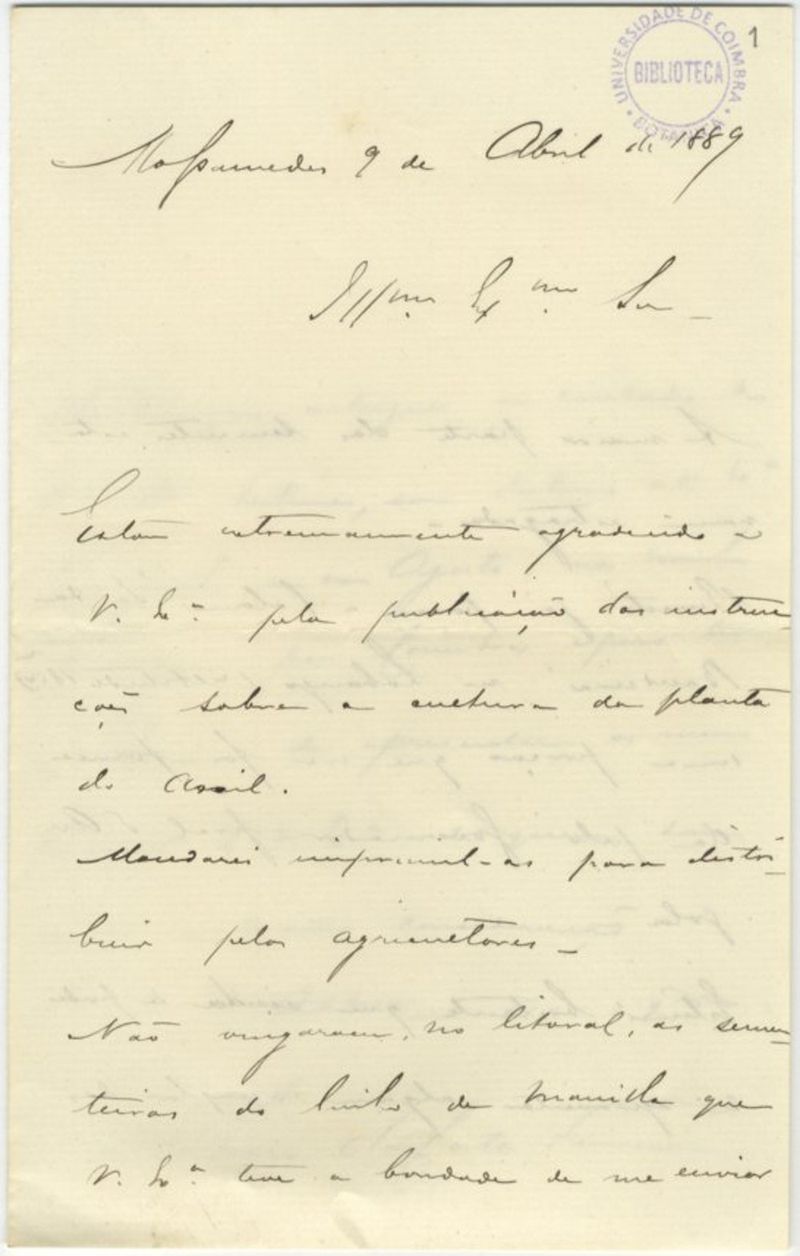 1
UNIVERSIDADE DE COIMBRA
BIBLIOTECA
BOTANICA
Mossamedes 9 de Abril de 1889
Illmo. Exmo. Snr
Estou extremamente agradecido a
V. Exa. pela publicação das instruc-
ções sobre a cultura da planta
do Anil.
Mandarei imprimil-as para distri-
buir pelos agricultores_
Não vingaram, no litoral, as semen-
teiras do linho de Manilla que
V. Exa. teve a bondade de me enviar